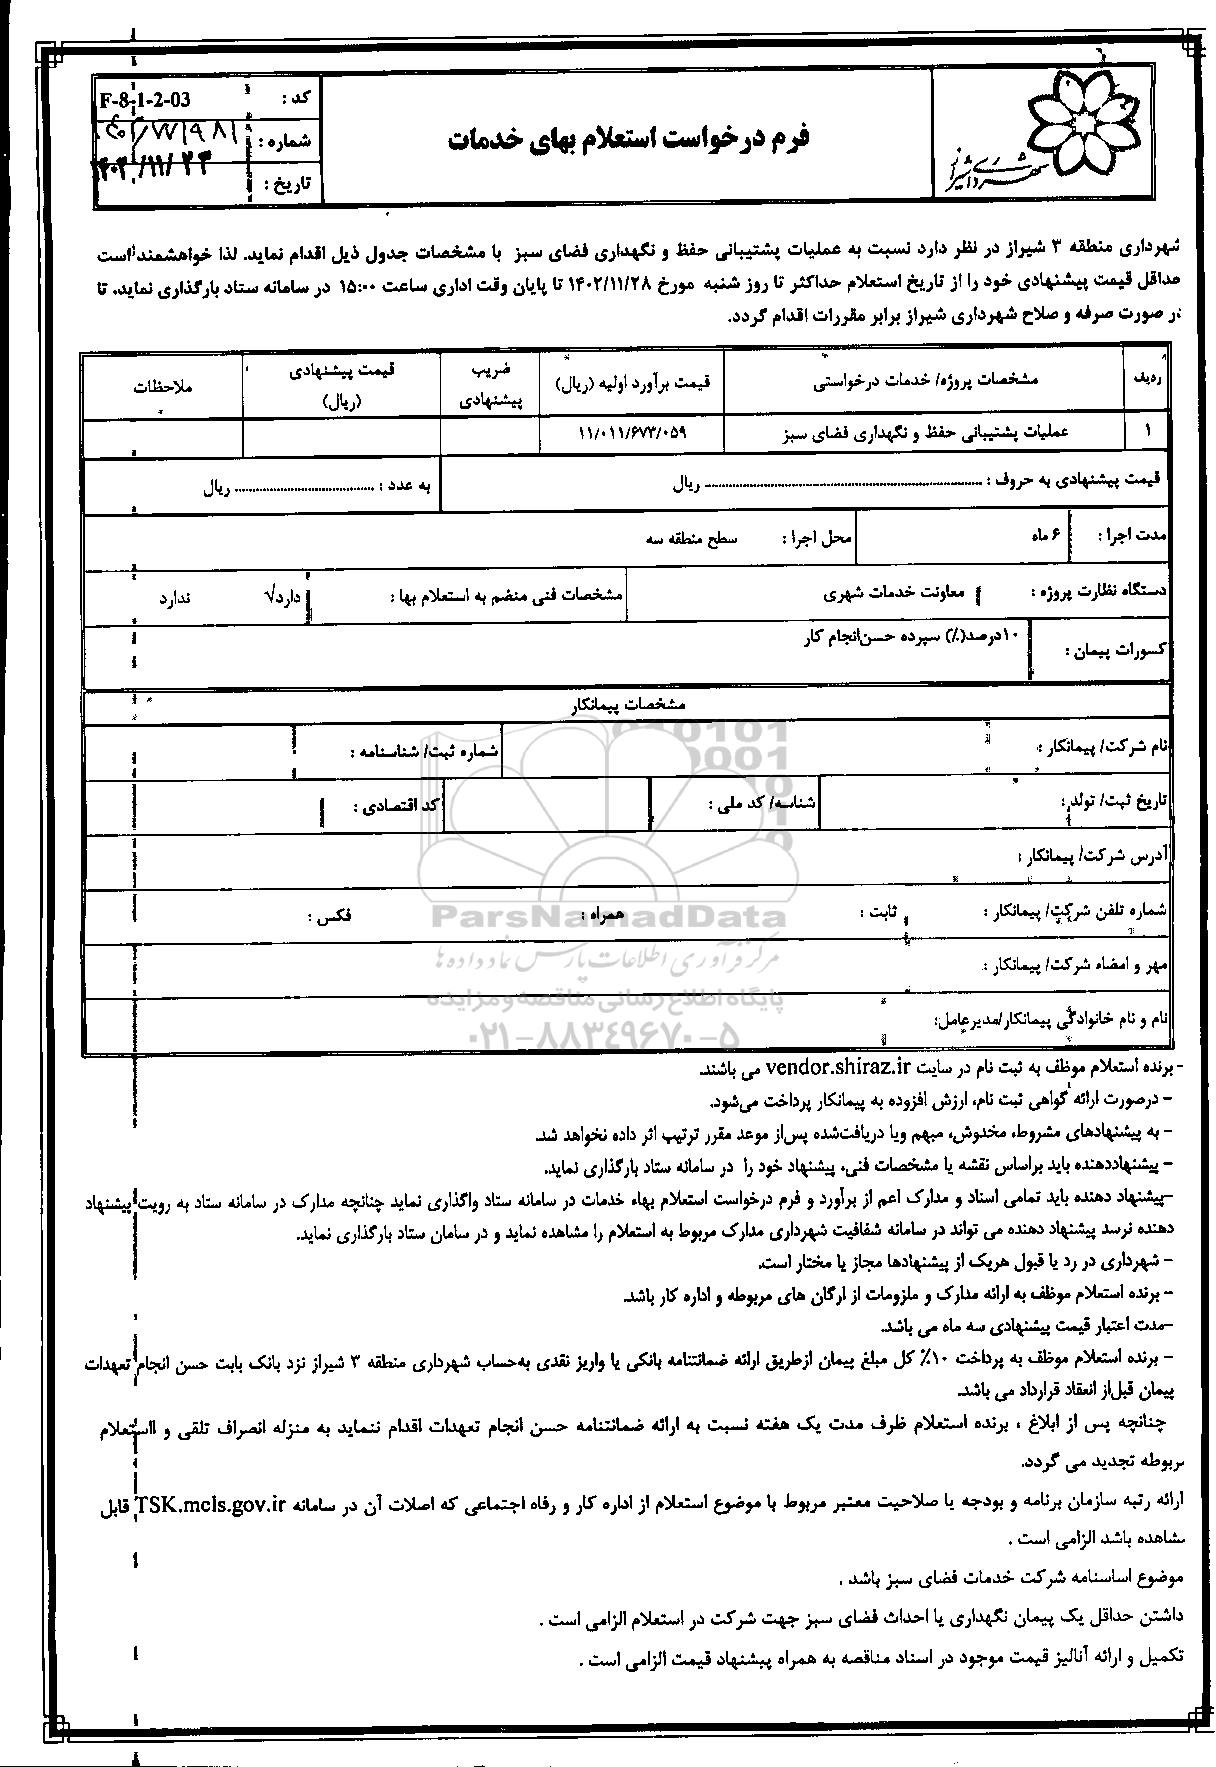 شهرداری شیراز
فرم درخواست استعلام بهای خدمات
کد : F-8-1-2-03
شماره :
تاریخ : ۱۴۰۲/۱۱/۲۳
شهرداری منطقه ۳ شیراز در نظر دارد نسبت به عملیات پشتیبانی حفظ و نگهداری فضای سبز با مشخصات جدول ذیل اقدام نماید. لذا خواهشمند است
حداقل قیمت پیشنهادی خود را از تاریخ استعلام حداکثر تا روز شنبه مورخ ۱۴۰۲/۱۱/۲۸ تا پایان وقت اداری ساعت ۱۵:۰۰ در سامانه ستاد بارگذاری نماید. تا
در صورت صرفه و صلاح شهرداری شیراز برابر مقررات اقدام گردد.
ردیف مشخصات پروژه/ خدمات درخواستی قیمت برآورد اولیه (ریال) ضریب پیشنهادی قیمت پیشنهادی (ریال) ملاحظات
۱ عملیات پشتیبانی حفظ و نگهداری فضای سبز ۱۱/۰۱۱/۶۷۳/۰۵۹
قیمت پیشنهادی به حروف : ........................ ریال به عدد : ........................ ریال
مدت اجرا : ۶ ماه محل اجرا : سطح منطقه سه
دستگاه نظارت پروژه : معاونت خدمات شهری مشخصات فنی منضم به استعلام بها : دارد√ ندارد
کسورات پیمان : ۱۰درصد(٪) سپرده حسن‌انجام کار
مشخصات پیمانکار
نام شرکت/ پیمانکار : شماره ثبت/ شناسنامه :
تاریخ ثبت/ تولد : شناسه/ کد ملی : کد اقتصادی :
آدرس شرکت/ پیمانکار :
شماره تلفن شرکت/ پیمانکار : ثابت : همراه : فکس :
مهر و امضاء شرکت/ پیمانکار :
نام و نام خانوادگی پیمانکار/مدیرعامل:
ParsNamadData
مرکز فرآوری اطلاعات پارس نماد داده ها
پایگاه اطلاع رسانی مناقصه و مزایده
۰۲۱-۸۸۳۴۹۶۷۰-۵
- برنده استعلام موظف به ثبت نام در سایت vendor.shiraz.ir می باشند.
- درصورت ارائه گواهی ثبت نام، ارزش افزوده به پیمانکار پرداخت می‌شود.
- به پیشنهادهای مشروط، مخدوش، مبهم ویا دریافت‌شده پس‌از موعد مقرر ترتیب اثر داده نخواهد شد.
- پیشنهاددهنده باید براساس نقشه یا مشخصات فنی، پیشنهاد خود را در سامانه ستاد بارگذاری نماید.
-پیشنهاد دهنده باید تمامی اسناد و مدارک اعم از برآورد و فرم درخواست استعلام بهاء خدمات در سامانه ستاد واگذاری نماید چنانچه مدارک در سامانه ستاد به رویت پیشنهاد
دهنده نرسد پیشنهاد دهنده می تواند در سامانه شفافیت شهرداری مدارک مربوط به استعلام را مشاهده نماید و در سامان ستاد بارگذاری نماید.
- شهرداری در رد یا قبول هریک از پیشنهادها مجاز یا مختار است.
- برنده استعلام موظف به ارائه مدارک و ملزومات از ارگان های مربوطه و اداره کار باشد.
-مدت اعتبار قیمت پیشنهادی سه ماه می باشد.
- برنده استعلام موظف به پرداخت ۱۰٪ کل مبلغ پیمان ازطریق ارائه ضمانتنامه بانکی یا واریز نقدی به‌حساب شهرداری منطقه ۳ شیراز نزد بانک بابت حسن انجام تعهدات
پیمان قبل‌از انعقاد قرارداد می باشد.
چنانچه پس از ابلاغ ، برنده استعلام ظرف مدت یک هفته نسبت به ارائه ضمانتنامه حسن انجام تعهدات اقدام ننماید به منزله انصراف تلقی و ااستعلام
مربوطه تجدید می گردد.
ارائه رتبه سازمان برنامه و بودجه یا صلاحیت معتبر مربوط با موضوع استعلام از اداره کار و رفاه اجتماعی که اصلات آن در سامانه TSK.mcls.gov.ir قابل
مشاهده باشد الزامی است .
موضوع اساسنامه شرکت خدمات فضای سبز باشد .
داشتن حداقل یک پیمان نگهداری یا احداث فضای سبز جهت شرکت در استعلام الزامی است .
تکمیل و ارائه آنالیز قیمت موجود در اسناد مناقصه به همراه پیشنهاد قیمت الزامی است .